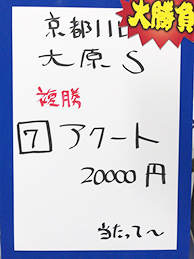 大勝負
京都11R
大原S
複勝
7 アクート
20000円
当たって〜